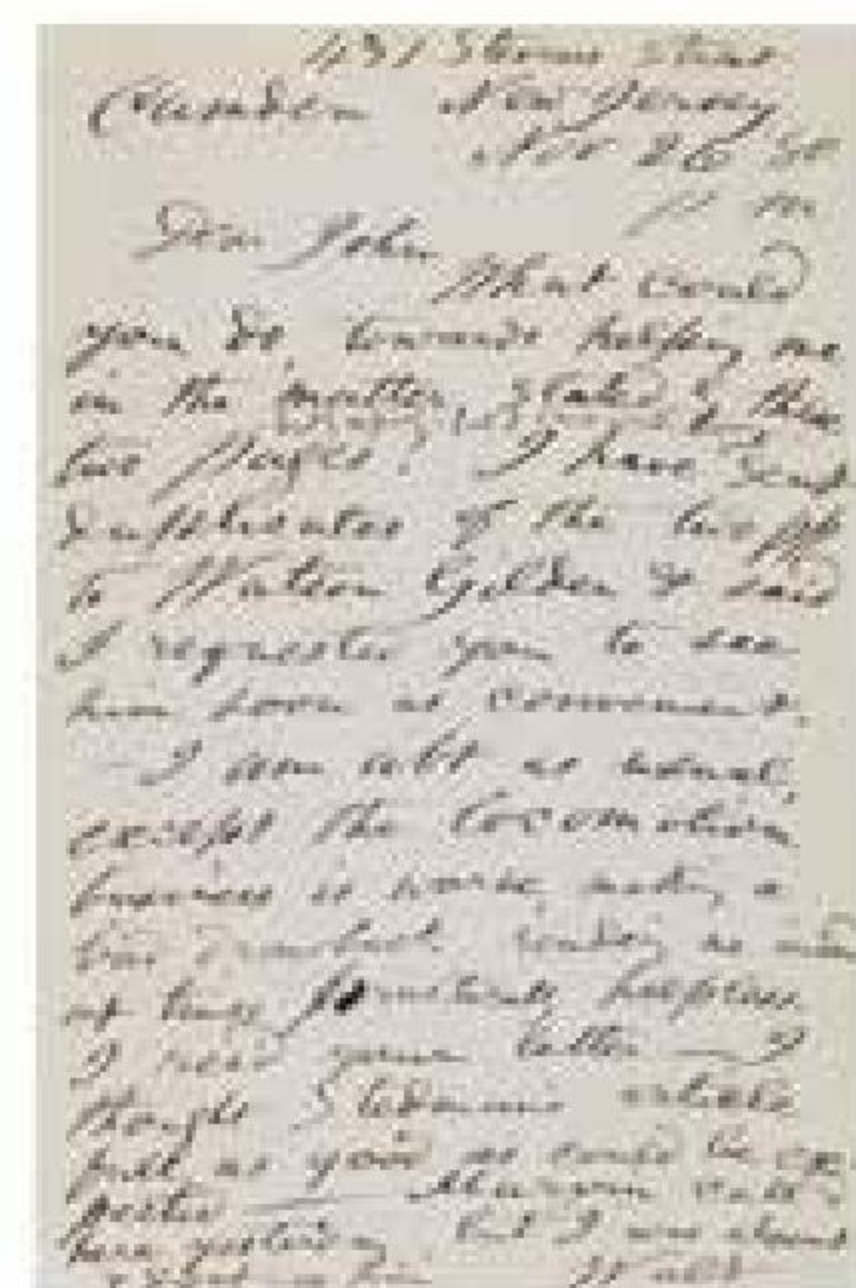 431 Stevens Street
Camden New Jersey
Nov 26 80
p m
Dear John
What could
you do, towards helping me
in the matter, stated in these
two pages? I have sent
duplicates of the two pp
to Watson Gilder & said
I requested you to see
him soon as convenient.
— I am abt as usual,
except the locomotion
business is worse, making a
bad drawback. rendering me
at times helpless
I rec'd your letter — I
thought Stedman's article
full as good as could be ex-
pected — Marvin call'd
here yesterday but I was absent
Walt